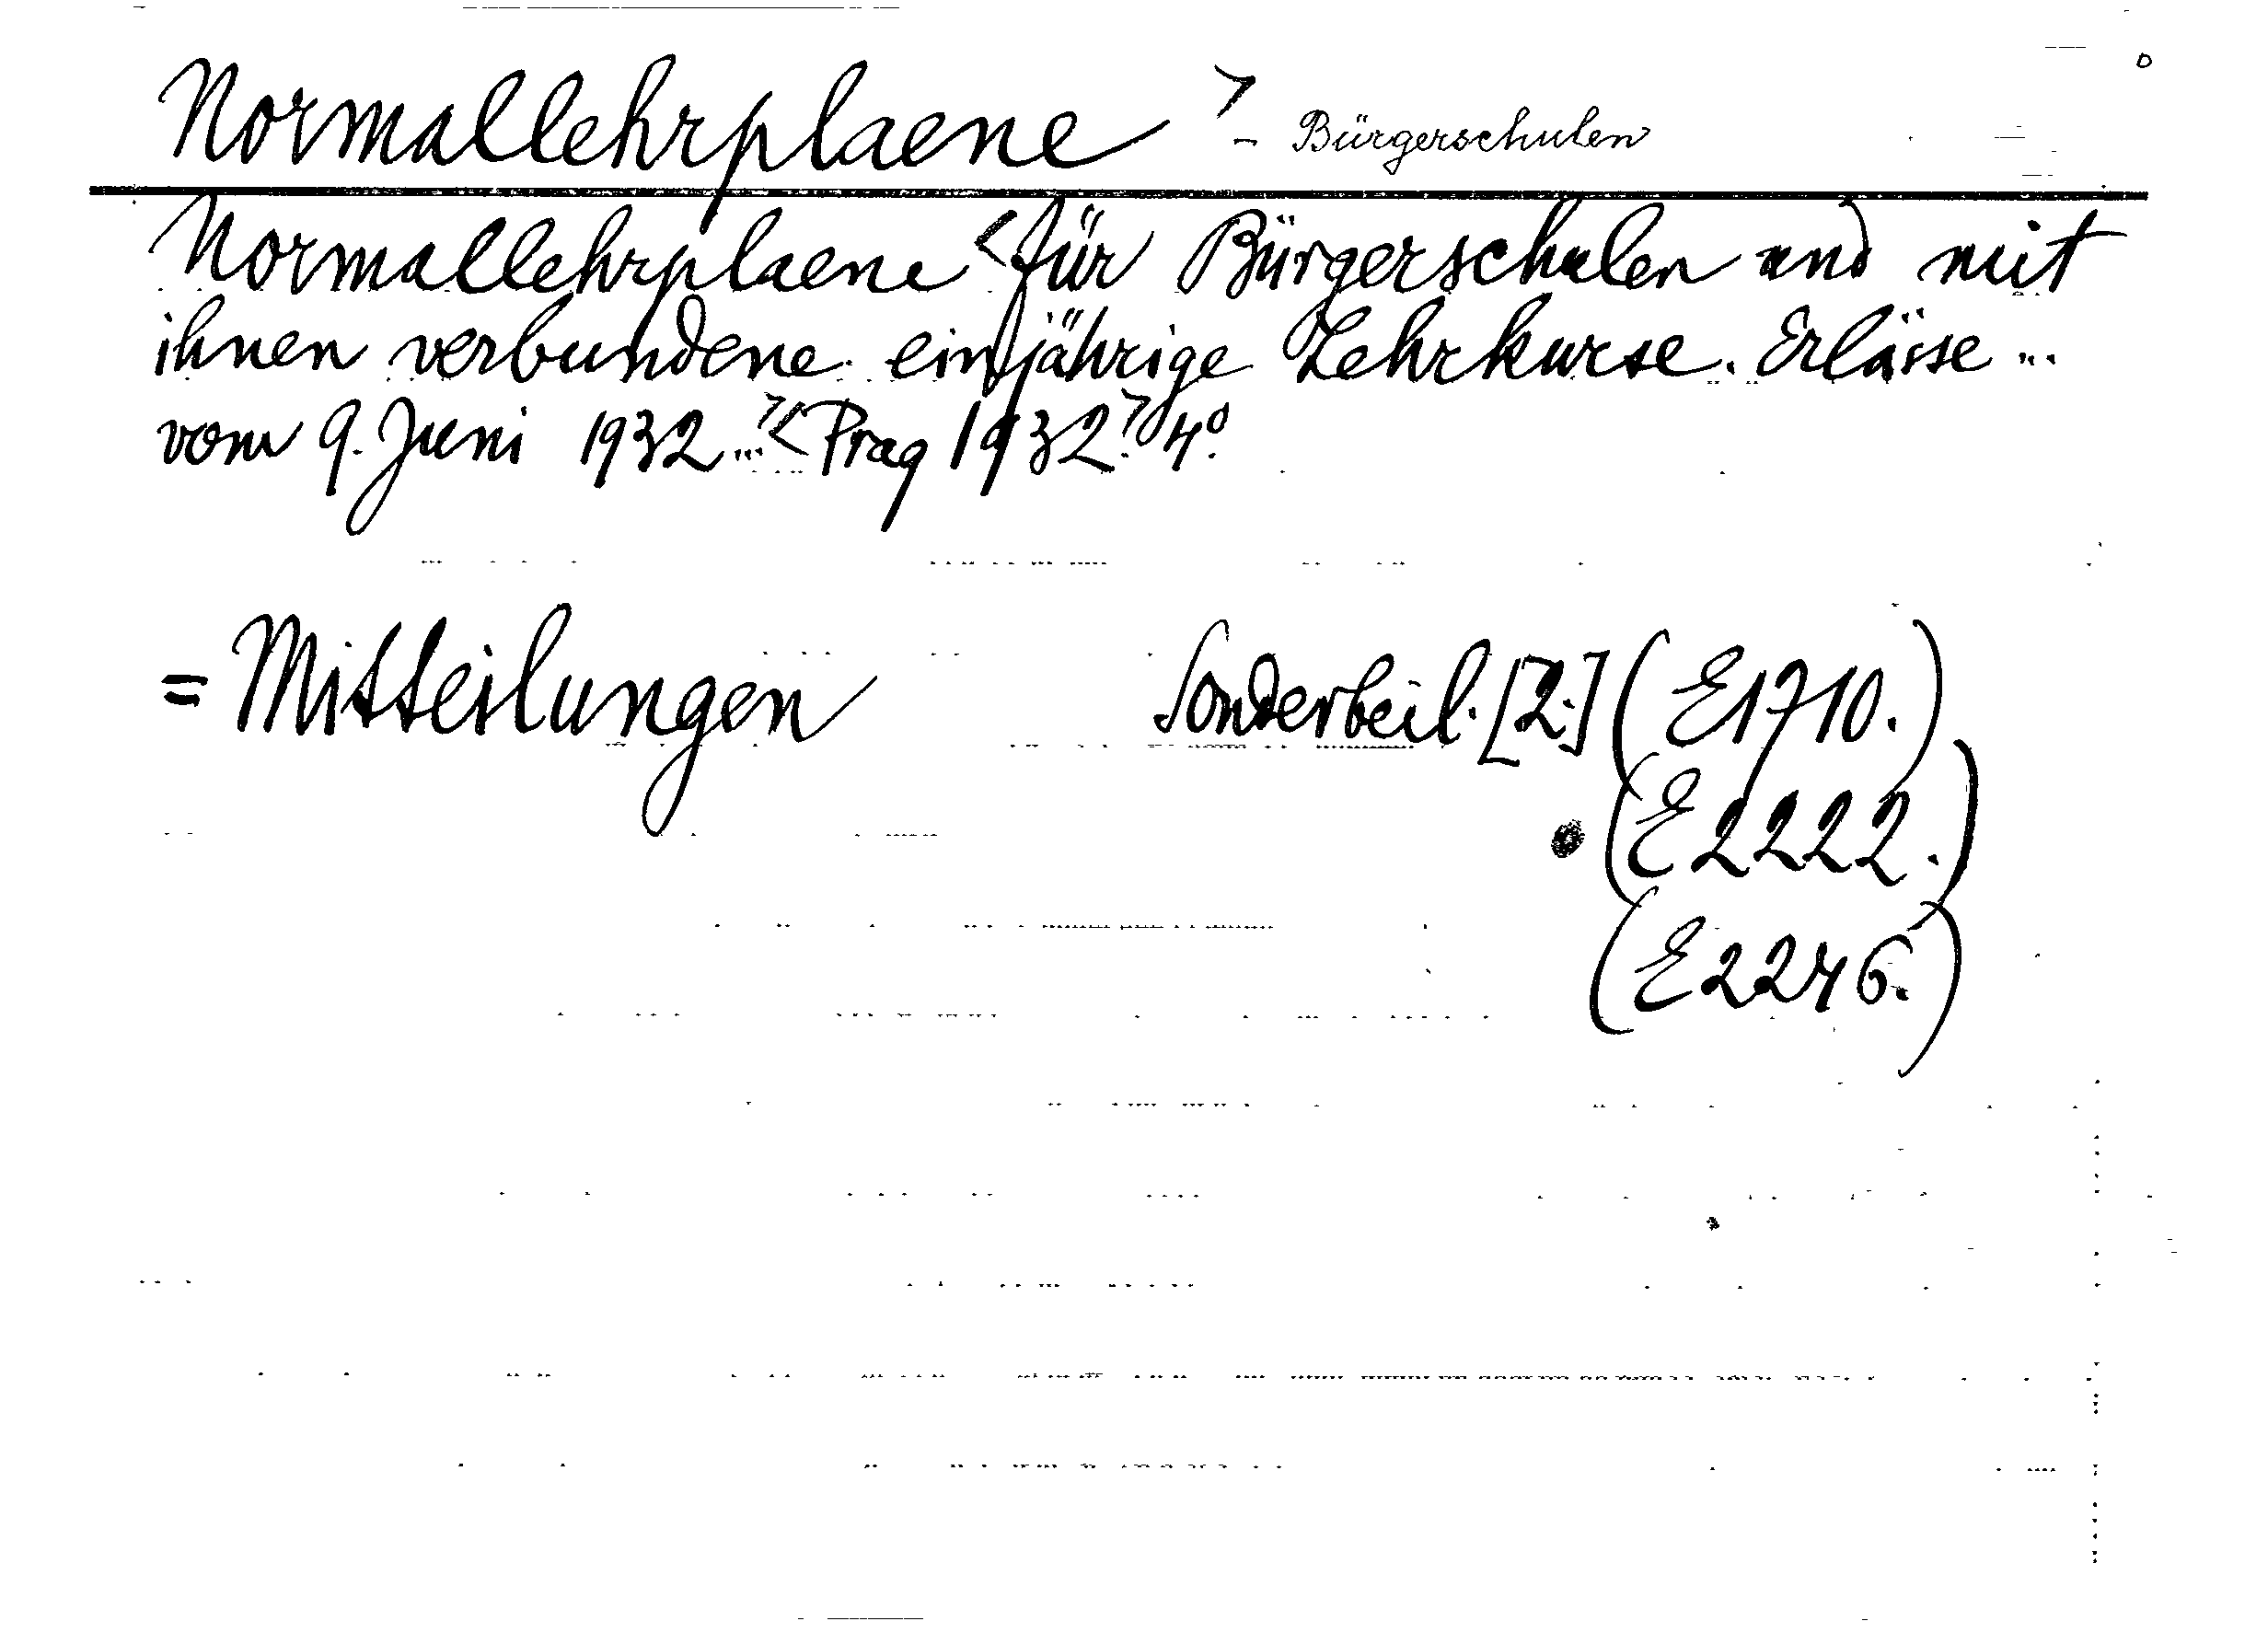 Normallehrplaene > - Bürgerschulen
Normallehrplaene < für Bürgerschulen und mit
ihnen verbundene einjährige Lehrkurse. Erlässe ...
vom 9. Juni 1932 ... > < Prag 1932. > 4°.
= Mitteilungen Sonderbeil. [2.] (E1710.)
(E2222.)
(E2246.)